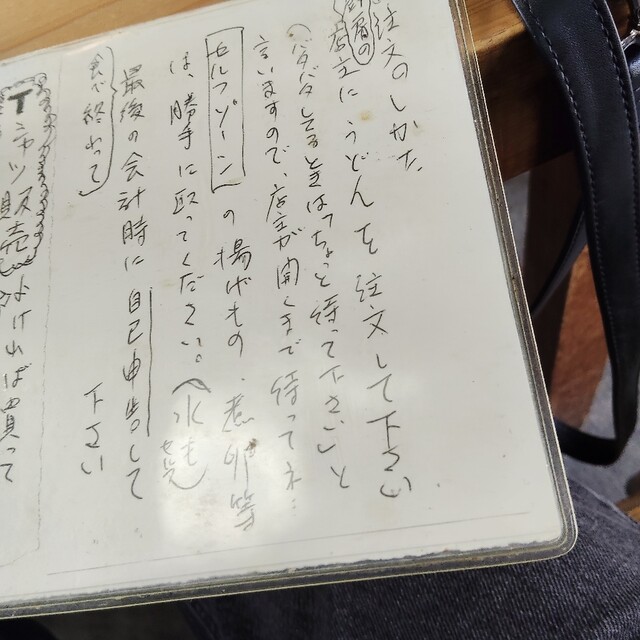 注文のしかた
店主にうどんを注文して下さい
(バタバタしてるときは"ちょっと待って下さい"と
言いますので、店主が聞くまで待ってネ…
セルフゾーンの揚げもの、煮卵等
は、勝手に取ってください。(水も
最後の会計時に自己申告して
下さい
食べ終わって
Tシャツ販売
よければ買って